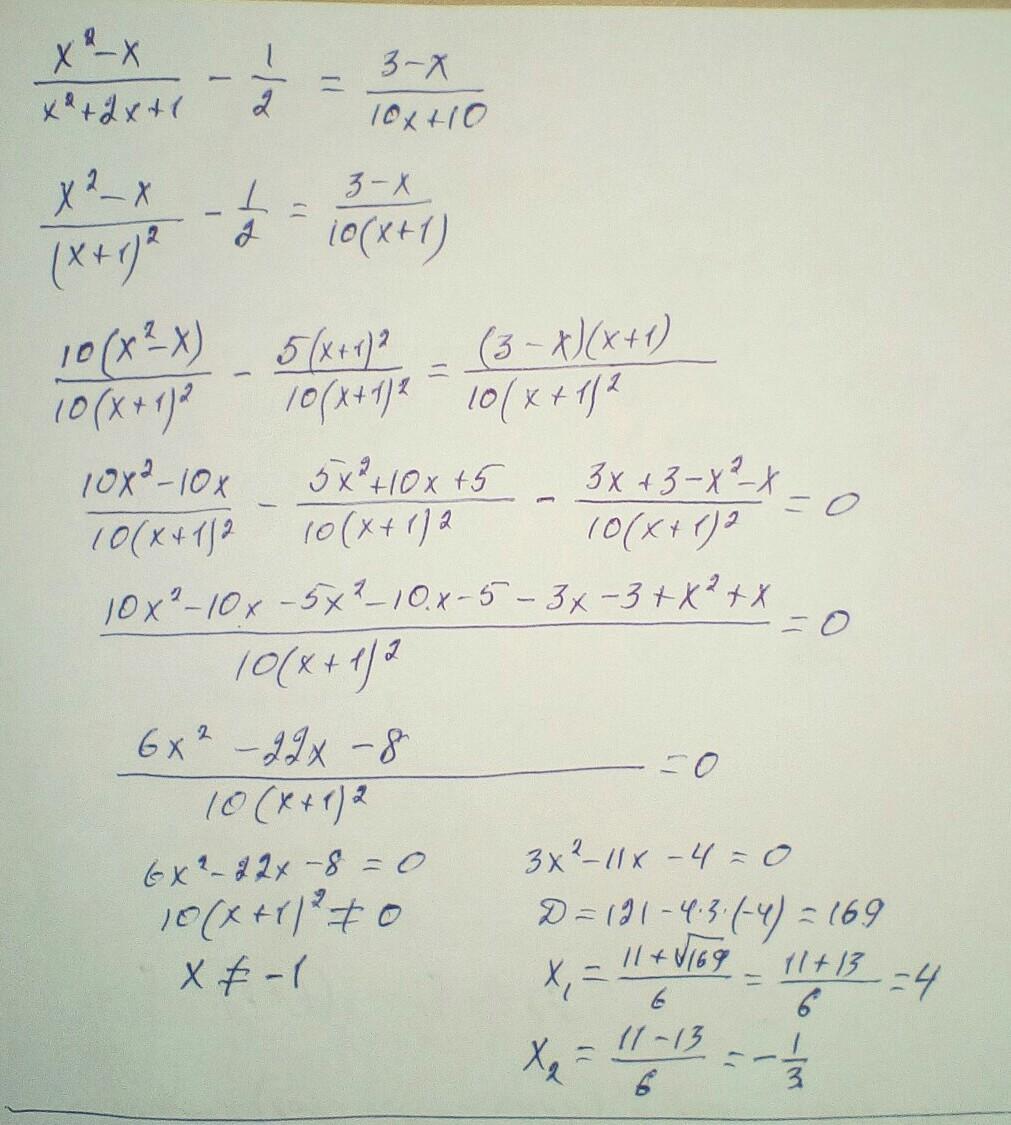 (x²-x)/(x²+2x+1) - 1/2 = (3-x)/(10x+10)
(x²-x)/(x+1)² - 1/2 = (3-x)/(10(x+1))
10(x²-x)/(10(x+1)²) - 5(x+1)²/(10(x+1)²) = (3-x)(x+1)/(10(x+1)²)
(10x²-10x)/(10(x+1)²) - (5x²+10x+5)/(10(x+1)²) - (3x+3-x²-x)/(10(x+1)²) = 0
(10x²-10x-5x²-10x-5-3x-3+x²+x)/(10(x+1)²) = 0
(6x²-22x-8)/(10(x+1)²) = 0
6x²-22x-8=0
10(x+1)²≠0
x≠-1
3x²-11x-4=0
D=121-4·3·(-4)=169
x₁=(11+√169)/6=(11+13)/6=4
x₂=(11-13)/6=-1/3